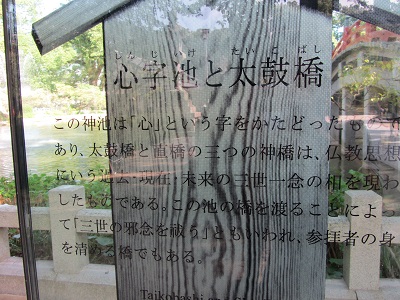 しんじいけ たいこばし
心字池と太鼓橋
この神池は「心」という字をかたどったもので
あり、太鼓橋と直橋の三つの神橋は、仏教思想
にいう過去・現在・未来の三世一念の相を現わ
したものである。この池の橋を渡ることによっ
て「三世の邪念を祓う」ともいわれ、参拝者の身
を清める橋でもある。
Taikobashi